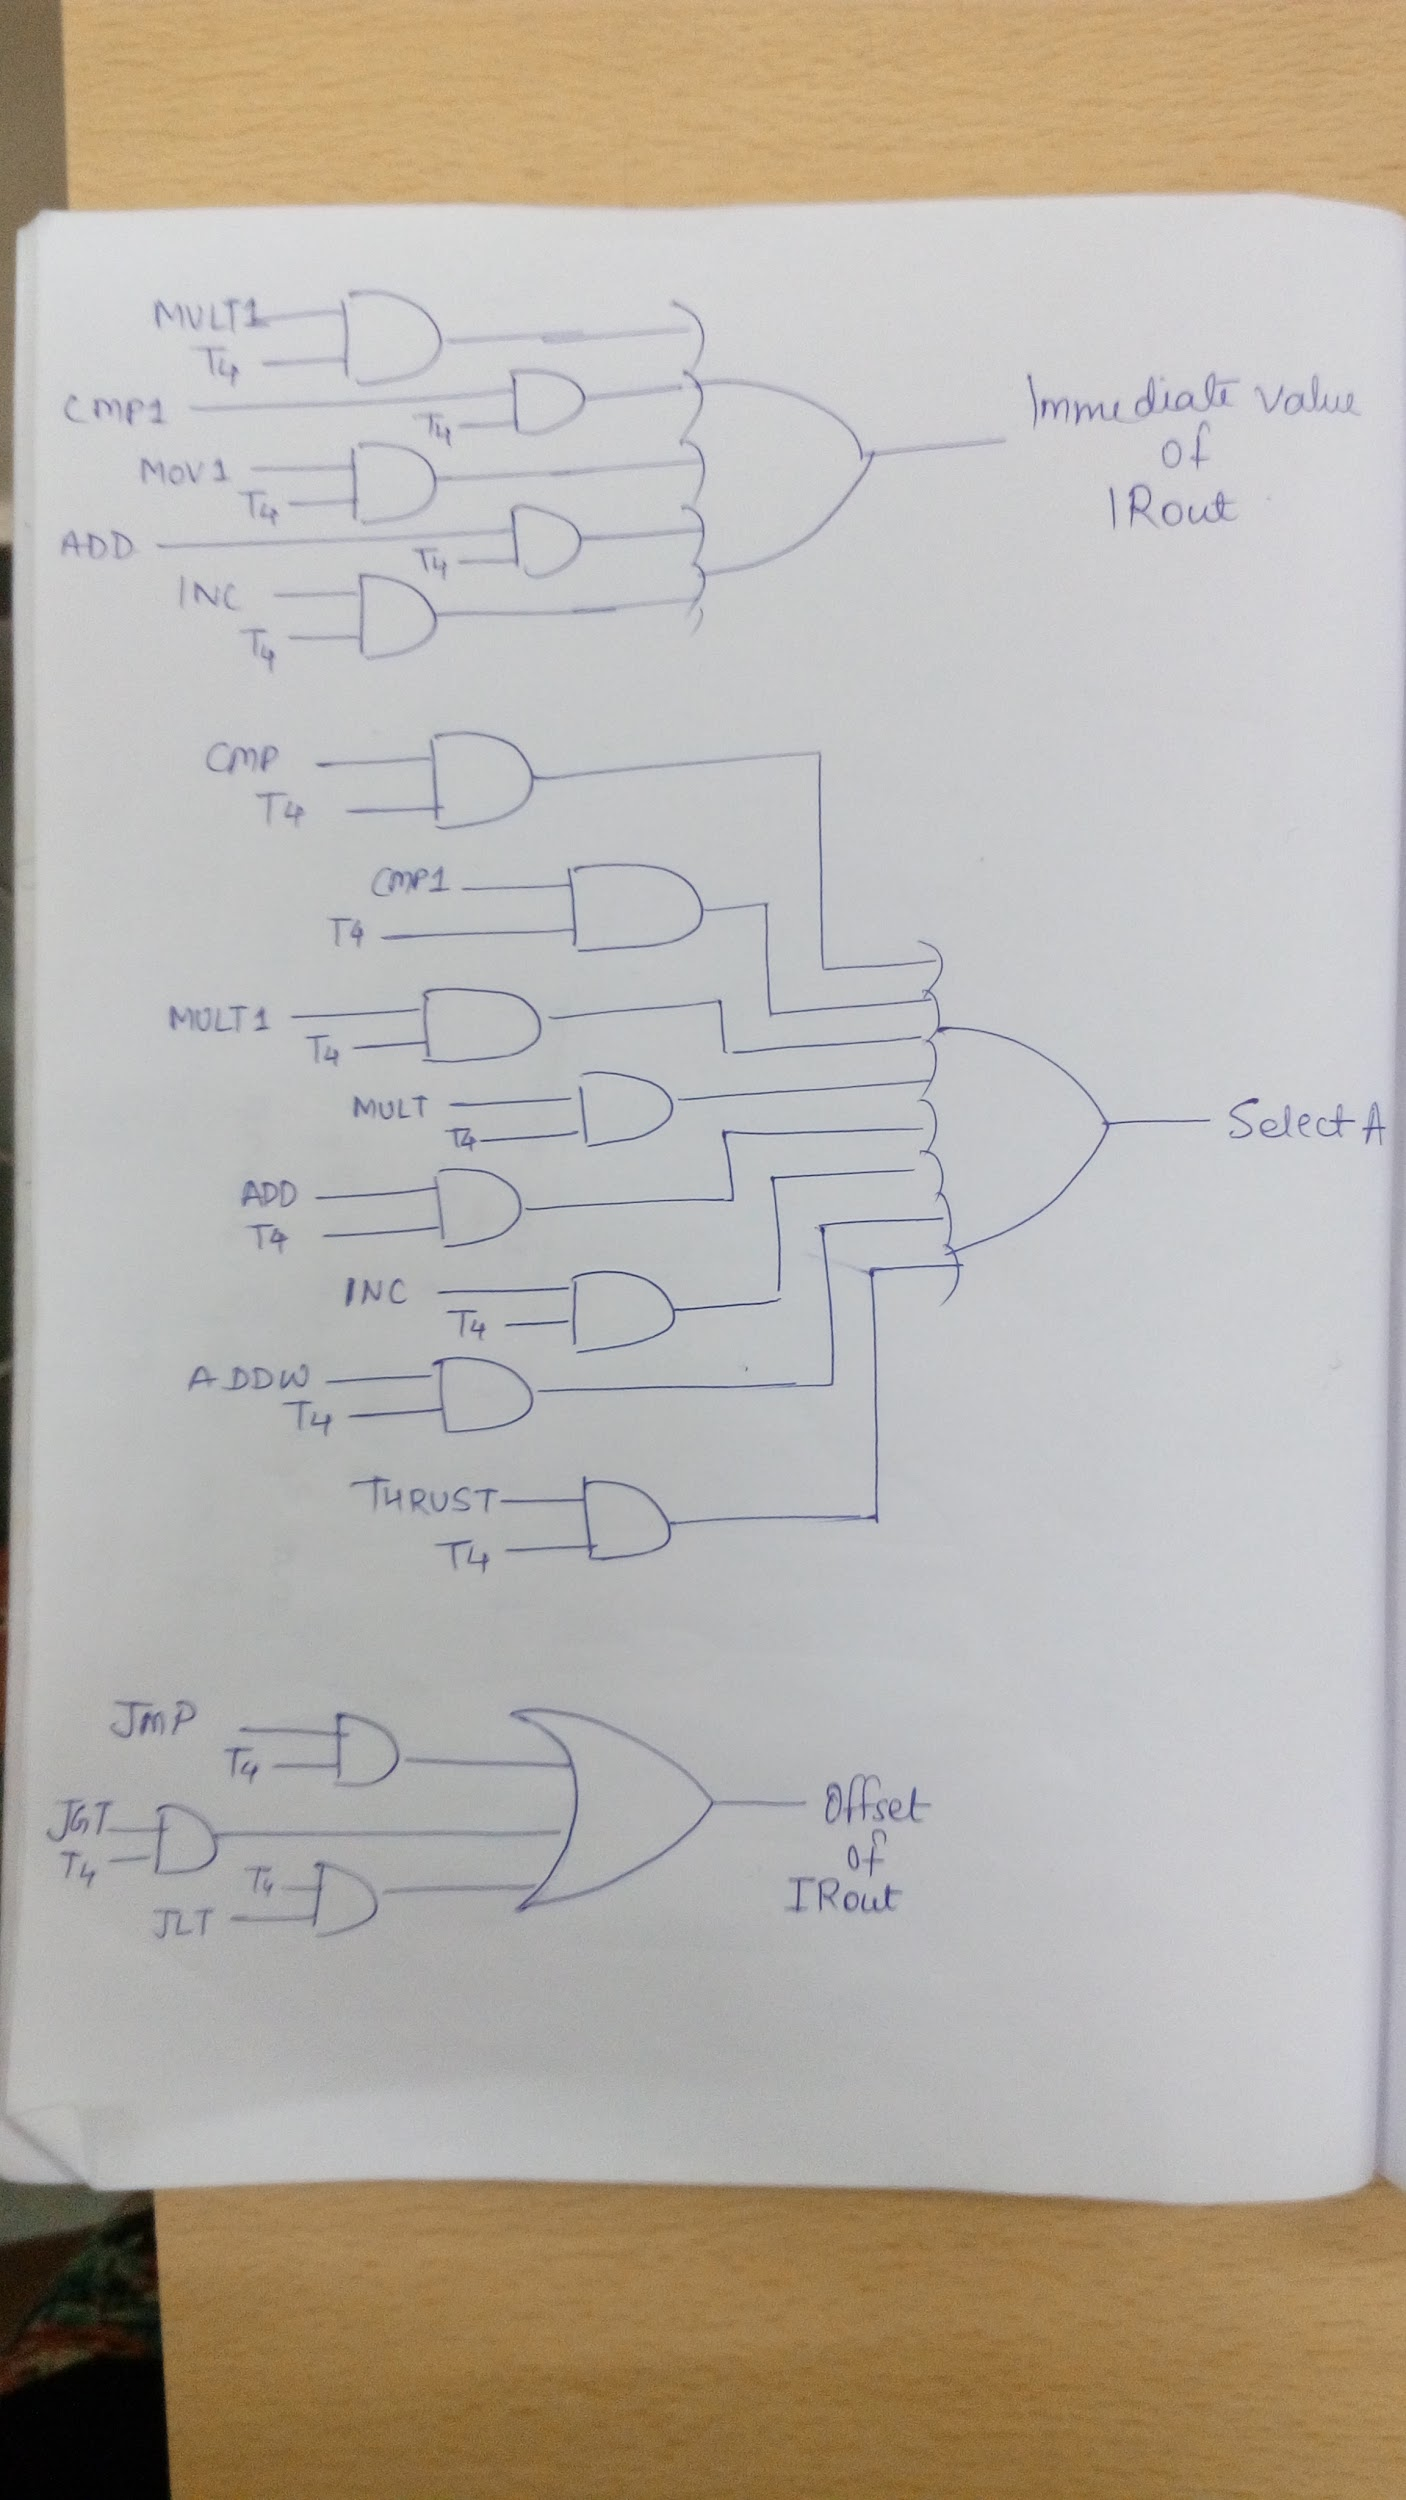 MULT1
T4
CMP1
T4
MOV1
T4
ADD
T4
INC
T4
Immediate value
of
IRout
CMP
T4
CMP1
T4
MULT1
T4
MULT
T4
ADD
T4
INC
T4
ADDW
T4
THRUST
T4
Select A
JMP
T4
JGT
T4
T4
JLT
Offset
of
IRout